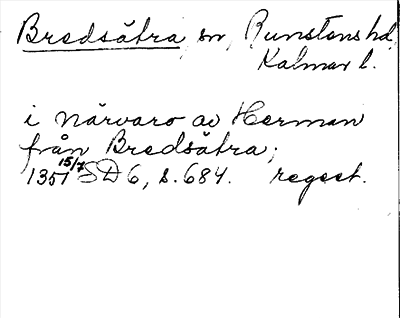 Bredsätra, sn, Runstens hd,
Kalmar l.
i närvaro av Herman
från Bredsätra;
1351 15/7 SD 6, s. 684. regest.